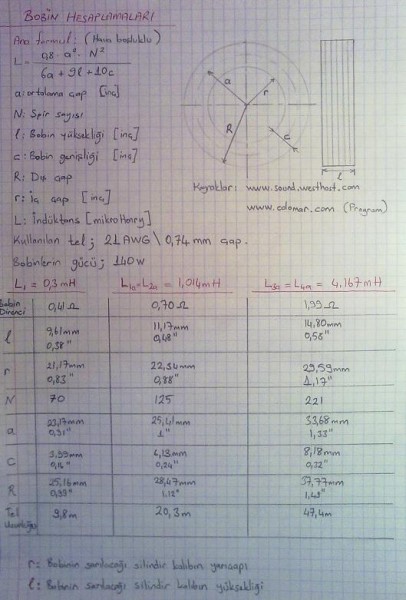 BOBİN HESAPLAMALARI
Ana formül: (Hava boşluklu)
L = 0,8 · a² · N² / 6a + 9l + 10c
a: ortalama çap [inç]
N: Spir sayısı
l: Bobin yüksekliği [inç]
c: Bobin genişliği [inç]
R: Dış çap
r: İç çap [inç]
L: İndüktans [mikroHenry]
a r R c l
Kaynaklar: www.sound.westhost.com
www.colomar.com (Program)
Kullanılan tel; 21AWG \ 0,74 mm çap.
Bobinlerin gücü; 140W
L₁ = 0,3 mH L₁₀=L₂₀ = 1,014mH = 4,167mH
Bobin Direnci 0,41Ω 0,70Ω 1,99Ω
l 9,61mm 11,17mm 14,80mm
0,38" 0,48" 0,58"
r 21,17mm 22,34mm 29,59mm
0,83" 0,88" 1,17"
N 70 125 221
a 23,17mm 25,41mm 33,68mm
0,91" 1" 1,33"
C 3,99mm 6,13mm 8,18mm
0,16" 0,24" 0,32"
R 25,16mm 28,47mm 37,77mm
0,99" 1,12" 1,49"
Tel Uzunluğu 9,8m 20,3m 47,4m
r: Bobinin sarılacağı silindir kalıbın yarıçapı
l: Bobinin sarılacağı silindir kalıbın yüksekliği